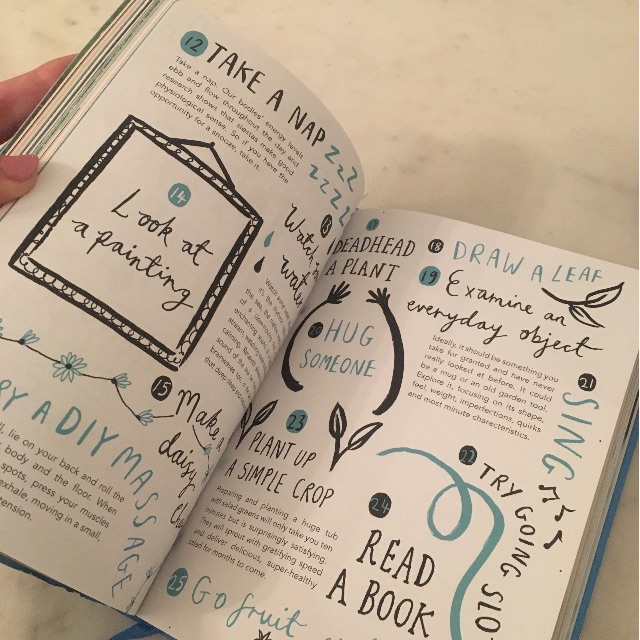 12
TAKE A NAP
Take a nap. Our bodies' energy levels
ebb and flow throughout the day and
research shows that siestas make good
physiological sense. So if you have the
opportunity for a snooze, take it.
ZZZ
ZZZZ
14
Look at
a painting
13
Watch
15
Make a
daisy
A DIY MASSAGE
lie on your back and roll the
body and the floor. When
spots, press your muscles
exhale, moving in a small,
tension.
17
DEADHEAD
A PLANT
18
DRAW A LEAF
19
Examine an
everyday object
Ideally, it should be something you
take for granted and have never
really looked at before. It could
be a mug or an old garden tool.
Explore it, focusing on its shape,
feel, weight, imperfections, quirks
and most minute characteristics.
20
HUG
SOMEONE
21
SING
22
TRY GOING
23
PLANT UP
A SIMPLE CROP
Preparing and planting a huge tub
with salad greens will only take you ten
minutes but is surprisingly satisfying.
They will sprout with gratifying speed
and deliver delicious, super-healthy
salad for months to come.
24
READ
A BOOK
25
Go fruit